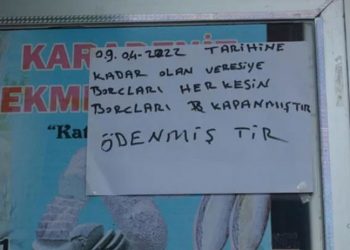 KARADENİZ
EKMEK
"Kat
09.04-2022 TARİHİNE
KADAR OLAN VERESİYE
BORCLARI HERKESİN
BORCLARI KAPANMIŞTIR
ÖDENMİŞ TİR